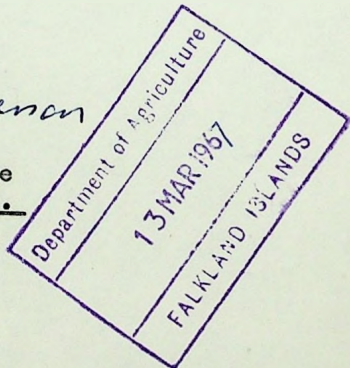 Department of Agriculture
13 MAR 1967
FALKLAND ISLANDS